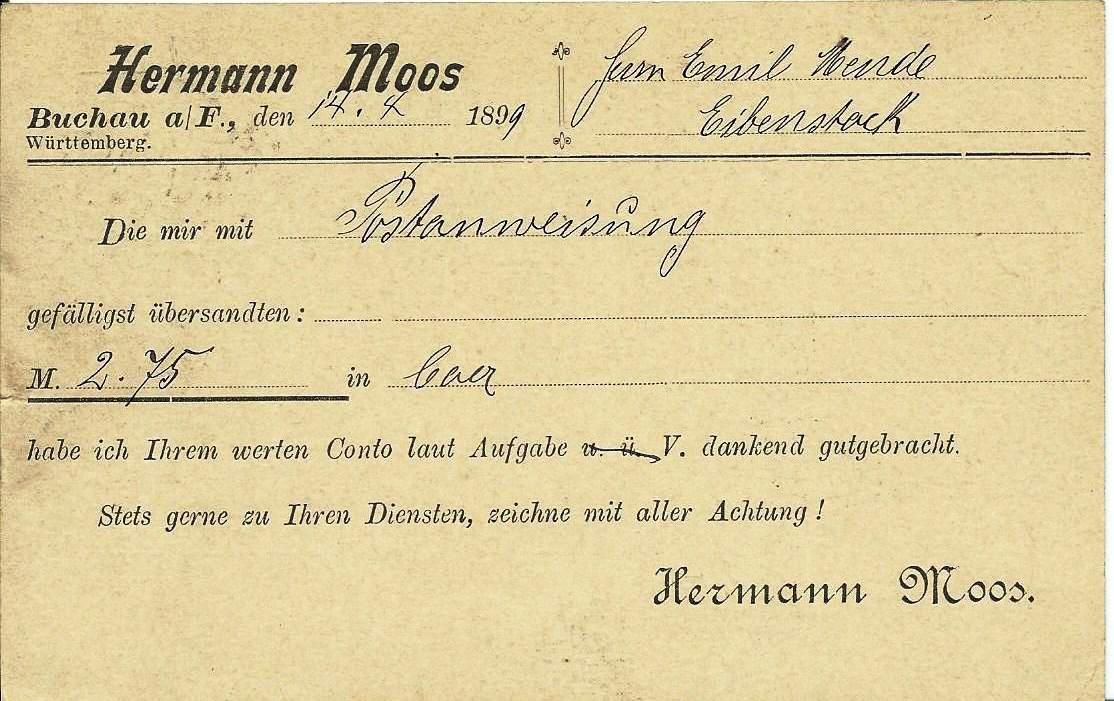 Hermann Moos
Buchau a/F., den 14. 8 1899
Württemberg.
Herrn Emil Mende
Eibenstock
Die mir mit Postanweisung
gefälligst übersandten:
M. 2.75 in
habe ich Ihrem werten Conto laut Aufgabe u. ü. V. dankend gutgebracht.
Stets gerne zu Ihren Diensten, zeichne mit aller Achtung!
Hermann Moos.